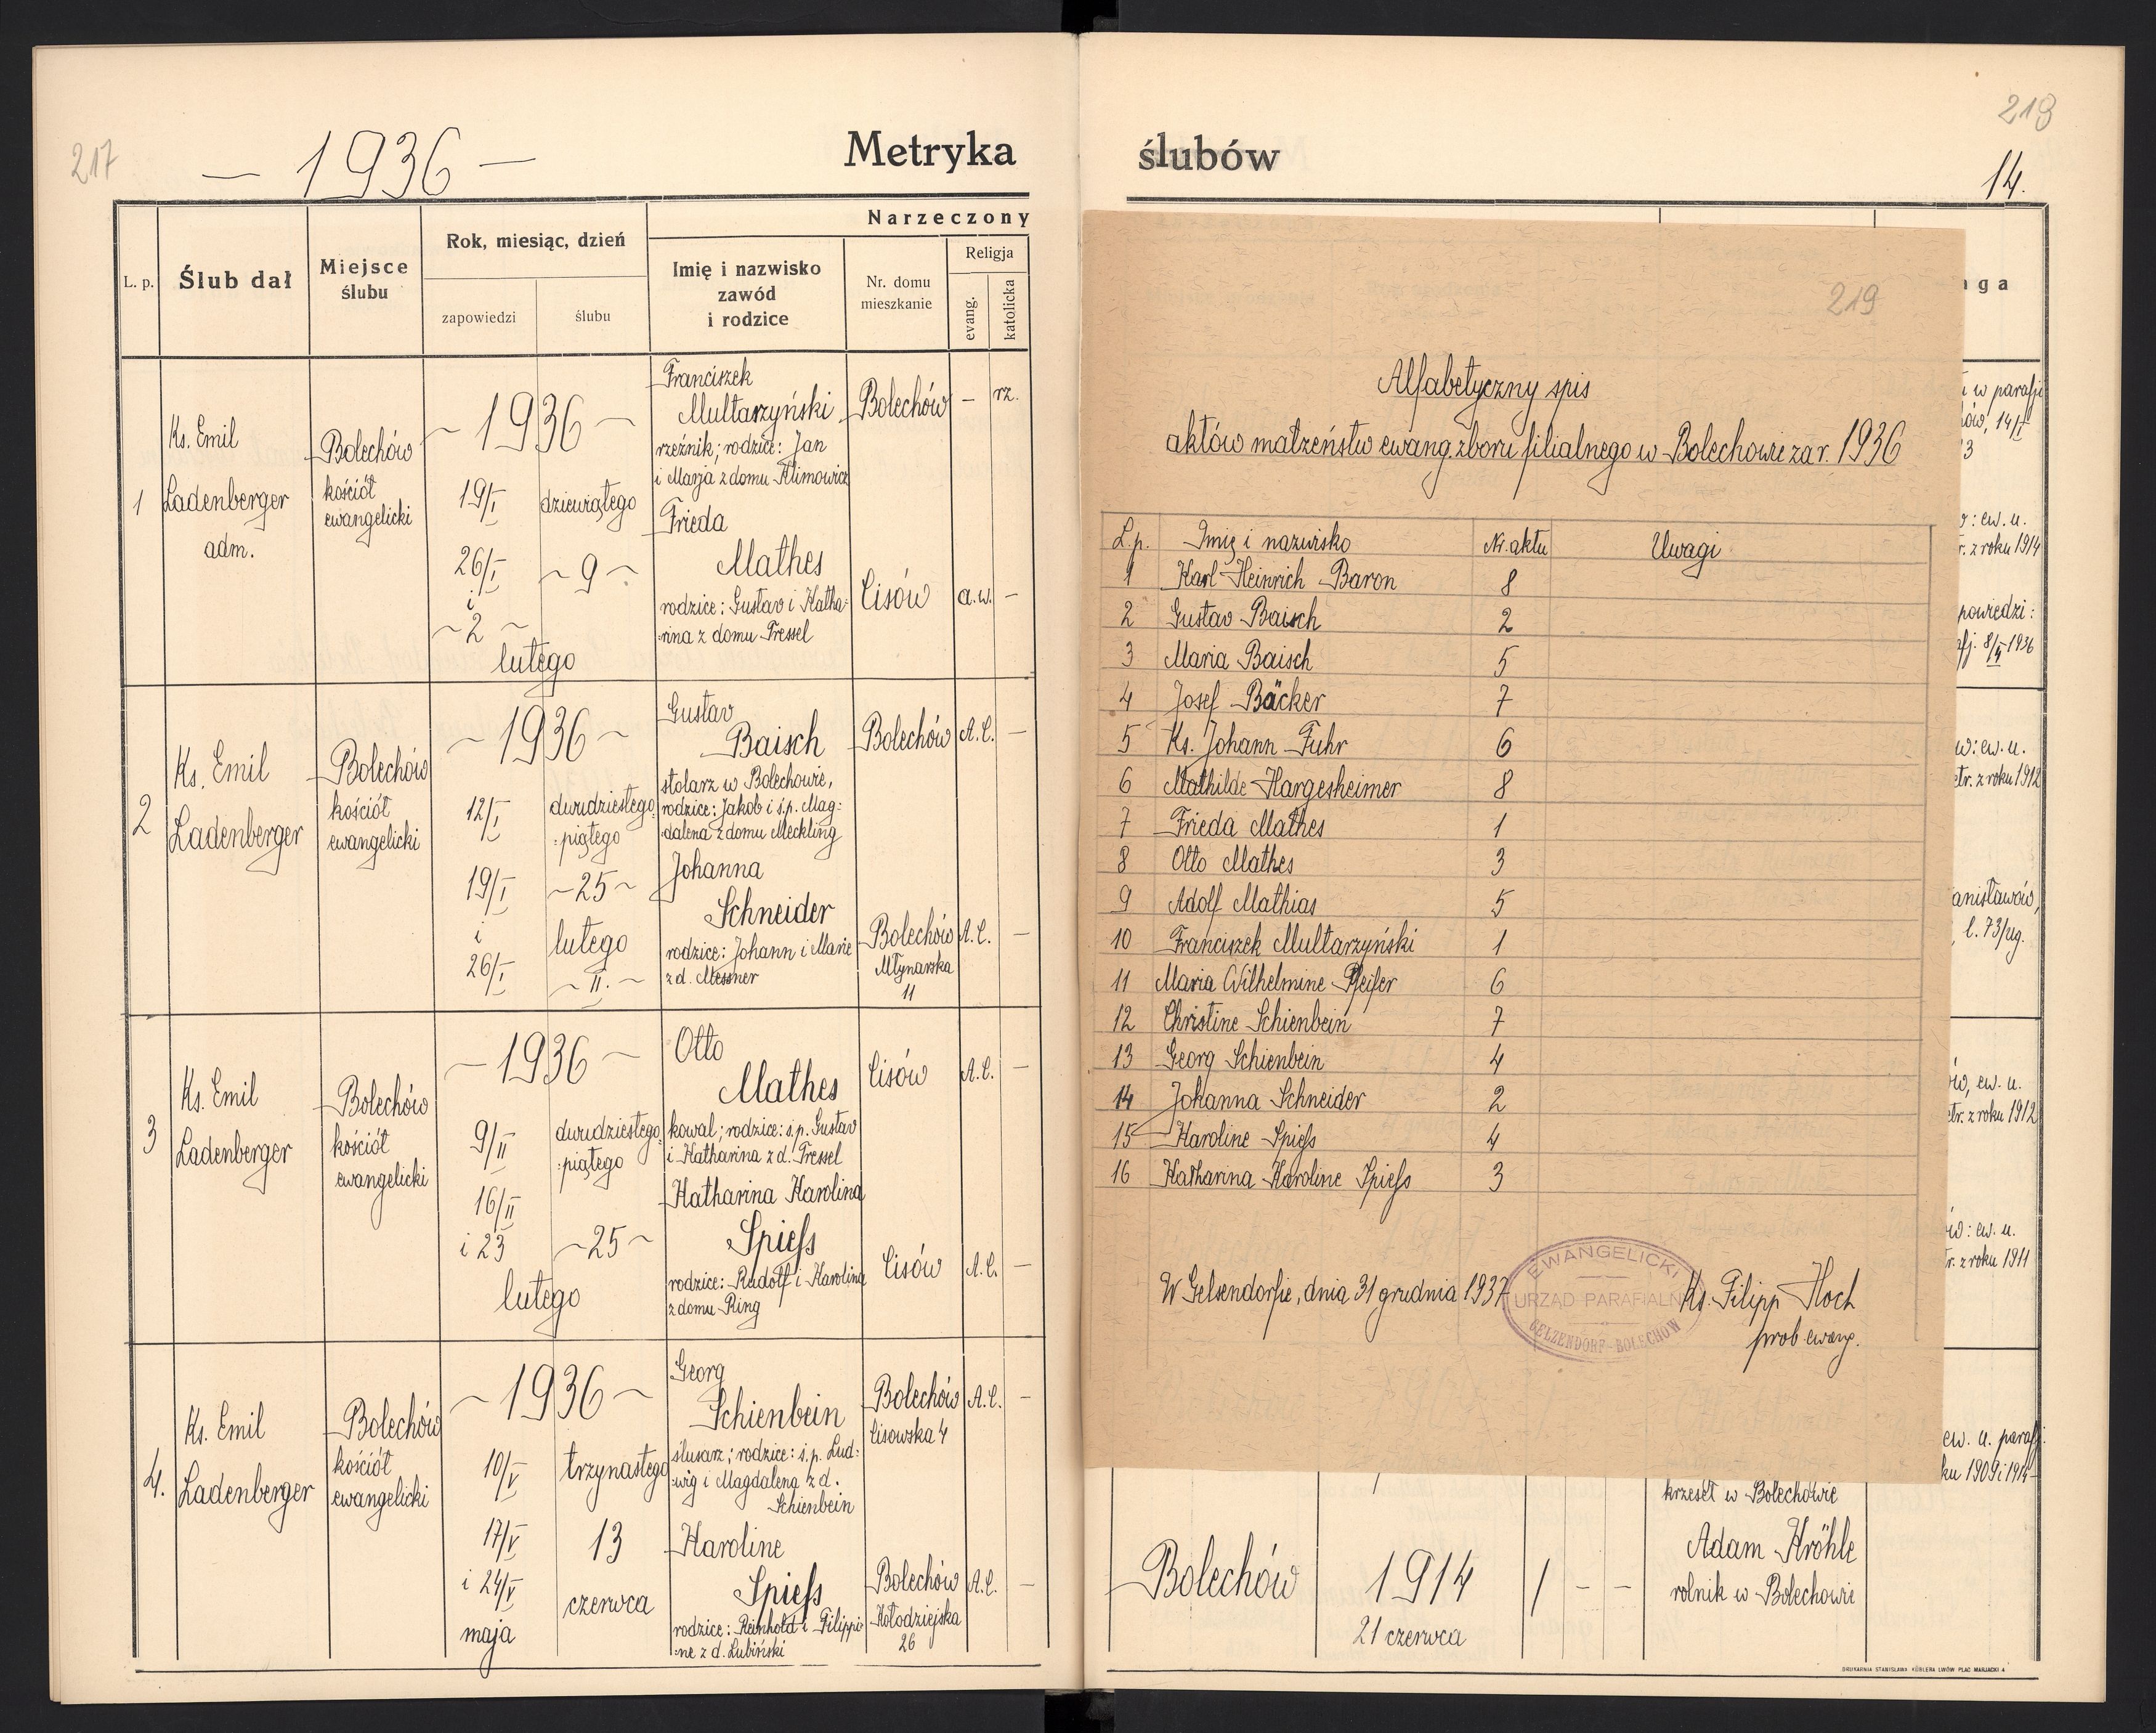 217
— 1936 —
Metryka
L. p.
Ślub dał
Miejsce
ślubu
Rok, miesiąc, dzień
zapowiedzi
ślubu
Narzeczony
Imię i nazwisko
zawód
i rodzice
Nr. domu
mieszkanie
Religja
evang.
katolicka
1
Ks. Emil
Ladenberger
adm.
Bolechów
kościół
ewangelicki
~ 1936 ~
19/I
26/I
i
~ 2 ~
dziewiątego
~ 9 ~
lutego
Franciszek
Multarzyński
rzeźnik; rodzice: Jan
i Marja z domu Klimowicz
Frieda
Mathes
rodzice: Gustav i Katha-
-rina z domu Tressel
Bolechów
Cisów
—
a.w.
rz.
—
2
Ks. Emil
Ladenberger
Bolechów
kościół
ewangelicki
~ 1936 ~
12/I
19/I
i
26/I
dwudziestego
-piątego
~ 25 ~
lutego
~ II. ~
Gustav
Baisch
stolarz w Bolechowie,
rodzice: Jakob i ś.p. Mag-
-dalena z domu Meckling
Johanna
Schneider
rodzice: Johann i Marie
z d. Messner
Bolechów
Bolechów
Młynarska
11
A.C.
—
A.C.
—
3
Ks. Emil
Ladenberger
Bolechów
kościół
ewangelicki
~ 1936 ~
9/II
16/II
i 23
dwudziestego
-piątego
~ 25 ~
lutego
Otto
Mathes
kowal; rodzice: ś.p. Gustav
i Katharina z d. Tressel
Katharina Karolina
Spieſs
rodzice: Rudolf i Karolina
z domu Ring
Cisów
Cisów
A.C.
—
A.C.
—
4.
Ks. Emil
Ladenberger
Bolechów
kościół
ewangelicki
~ 1936 ~
10/V
17/V
i 24/V
maja
trzynastego
13
czerwca
Georg
Schienbein
ślusarz; rodzice: ś.p. Lud-
-wig i Magdalena z d.
Schienbein
Karoline
Spieſs
rodzice: Reinhold i Filippi-
-ne z d. Lubiński
Bolechów
Cisowska 4
Bolechów
Kołodziejska
26
A.C.
—
A.C.
—
219
ślubów
14.
219
Alfabetyczny spis
aktów małżeństw ewang. zboru filialnego w Bolechowie za r. 1936
L.p. Imię i nazwisko Nr. aktu Uwagi
1 Karl Heinrich Baron 8
2 Gustav Baisch 2
3 Maria Baisch 5
4 Josef Bäcker 7
5 Ks. Johann Fuhr 6
6 Mathilde Hargesheimer 8
7 Frieda Mathes 1
8 Otto Mathes 3
9 Adolf Mathias 5
10 Franciszek Multarzyński 1
11 Maria Wilhelmine Pfeifer 6
12 Christine Schienbein 7
13 Georg Schienbein 4
14 Johanna Schneider 2
15 Karoline Spieſs 4
16 Katharina Karoline Spieſs 3
W Gelsendorfie, dnia 31 grudnia 1937
EWANGELICKI
URZĄD PARAFIALN
GELZENDORF-BOLECHÓW
Ks. Filipp Koch
prob. ewang.
w parafji
ów, 14/I
3
: ew. u.
r. z roku 1914
powiedzi:
afj. 8/II 1936
w: ew. u.
etr. z roku 1912
anisławów,
l. 73/ug.
ów, ew. u.
etr. z roku 1912
ów: ew. u.
tr. z roku 1911
ew. u. parafj.
ku 1909 i 1914
krzeseł w Bolechowie
Bolechów
1914
21 czerwca
1 - -
Adam Kröhle
rolnik w Bolechowie
DRUKARNIA STANISŁAWA KÜBLERA LWÓW PLAC MARJACKI 4